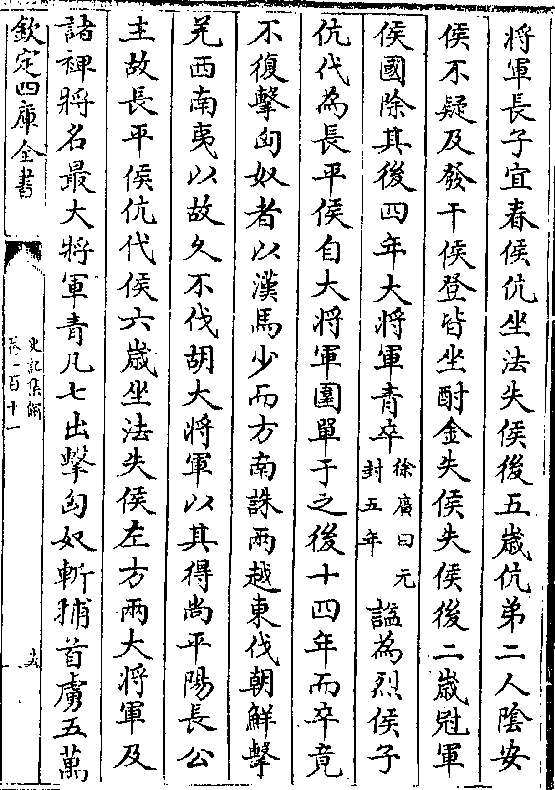 將軍長子宜春侯伉坐法失侯後五歲伉弟二人陰安
侯不疑及發干侯登皆坐酎金失侯失侯後二歲冠軍
侯國除其後四年大將軍青卒徐廣曰元封五年諡為烈侯子
伉代為長平侯自大將軍圍單于之後十四年而卒竟
不復擊匈奴者以漢馬少而方南誅兩越東伐朝鮮擊
羌西南夷以故久不伐胡大將軍以其得尚平陽長公
主故長平侯伉代侯六歲坐法失侯左方兩大將軍及
諸裨將名最大將軍青凡七出擊匈奴斬捕首虜五萬
欽定四庫全書
史記集解
卷一百十一